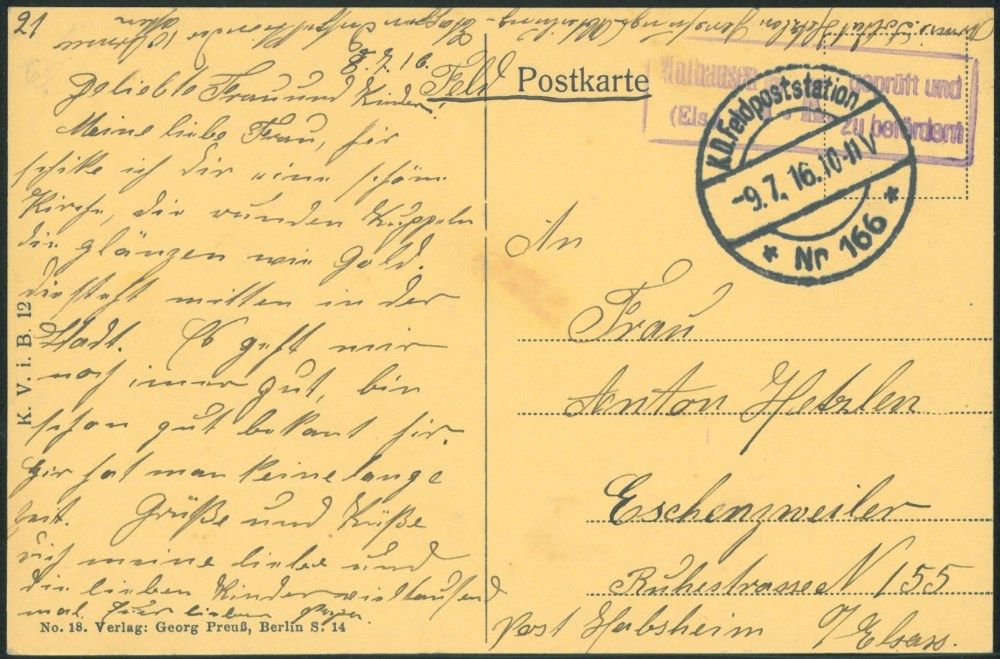 21
8.7.16.
Geliebte Frau und Kinder!
Meine liebe Frau, hir
schike ich dir eine schöne
Kirche, die runden Kuppeln
die glänzen wie Gold.
die steht mitten in der
Stadt. Es geht mir
noch imer gut, bin
schon gut bekant hir.
hir hat man keine lange
zeit. Grüße und Küße
dich meine liebe und
die lieben Kinder vieltausend
mal. Euer lieber Papa.
K. V. i. B. 12
No. 18. Verlag: Georg Preuß, Berlin S. 14
Feld Postkarte
Mülhausen geprüft und
(Els. zu befördern
K.D. Feldpoststation
-9.7.16.10-11V
* Nr. 166 *
An
Frau
Anton Hetzlen
Eschenzweiler
Ruhestrasse N 155
Post Habsheim i/Elsass.